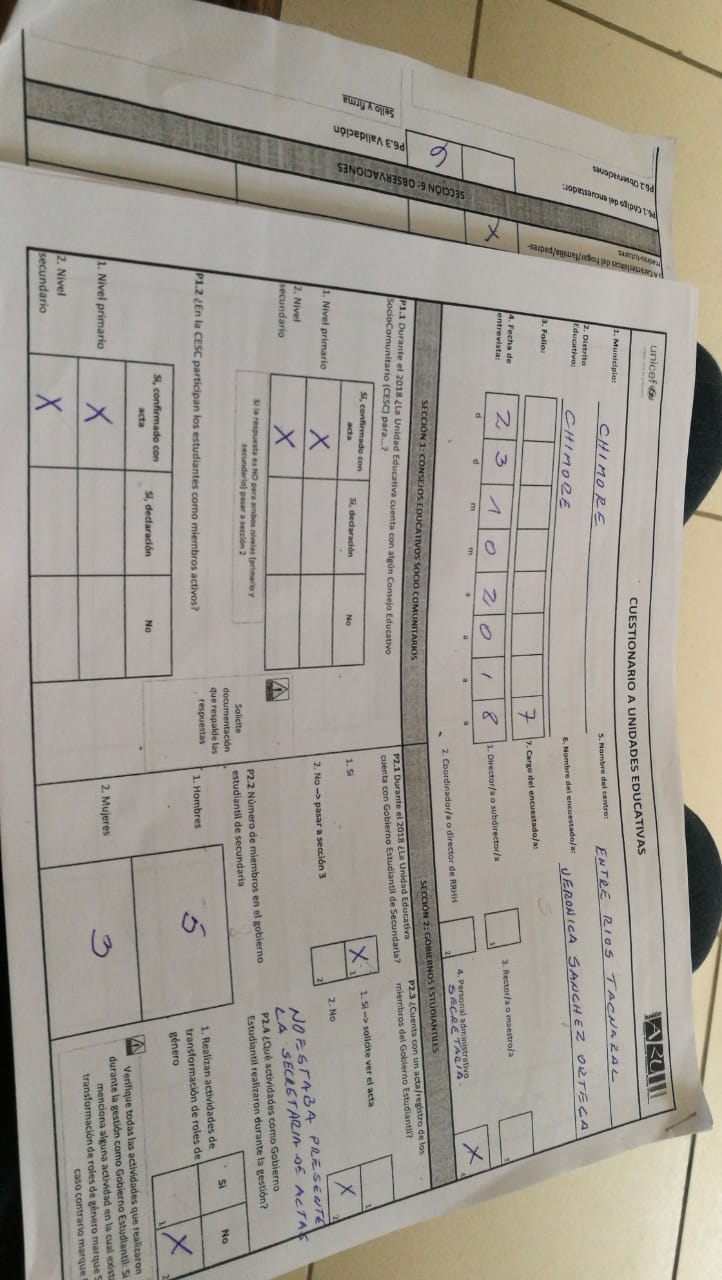 unicef
ARU
CUESTIONARIO A UNIDADES EDUCATIVAS
1. Municipio: CHIMORE
2. Distrito Educativo: CHIMORE
3. Folio: 7
4. Fecha de entrevista: 2 3 1 0 2 0 1 8
d d m m a a a a
5. Nombre del centro: ENTRE RIOS TACNARAL
6. Nombre del encuestado/a: VERONICA SANCHEZ ORTEGA
7. Cargo del encuestado/a:
1. Director/a o subdirector/a 1
2. Coordinador/a o director de RRHH 2
3. Rector/a o maestro/a 3
4. Personal administrativo X
SECRETARIA
SECCIÓN 1: CONSEJOS EDUCATIVOS SOCIO COMUNITARIOS
P1.1 Durante el 2018 ¿La Unidad Educativa cuenta con algún Consejo Educativo
SocioComunitario (CESC) para...?
Si, confirmado con acta
Si, declaración
No
1. Nivel primario X
2. Nivel secundario X
Si la respuesta es NO para ambos niveles (primario y
secundario) pasar a sección 2
P1.2 ¿En la CESC participan los estudiantes como miembros activos?
Si, confirmado con acta
Si, declaración
No
1. Nivel primario X
2. Nivel secundario X
Solicite
documentación
que respalde las
respuestas
SECCIÓN 2: GOBIERNOS ESTUDIANTILES
P2.1 Durante el 2018 ¿La Unidad Educativa
cuenta con Gobierno Estudiantil de Secundaria?
1. Si X 1
2. No --> pasar a sección 3 2
P2.2 Número de miembros en el gobierno
estudiantil de secundaria
1. Hombres 5
2. Mujeres 3
P2.3 ¿Cuenta con un acta/registro de los
miembros del Gobierno Estudiantil?
1. Si --> solicite ver el acta 1
2. No X 2
NO ESTABA PRESENTE
LA SECRETARIA DE ACTAS
P2.4 ¿Qué actividades como Gobierno
Estudiantil realizaron durante la gestión?
Si No
1. Realizan actividades de
transformación de roles de
género 1 X 2
Verifique todas las actividades que realizaron
durante la gestión como Gobierno Estudiantil: Si
menciona alguna actividad en la cual exista
transformación de roles de género marque S
caso contrario marque
Características del hogar/familia/padres-
madres-tutores X
SECCIÓN 6: OBSERVACIONES
P6.1 Código del encuestador: 6
P6.2 Observaciones
P6.3 Validación
Sello y firma